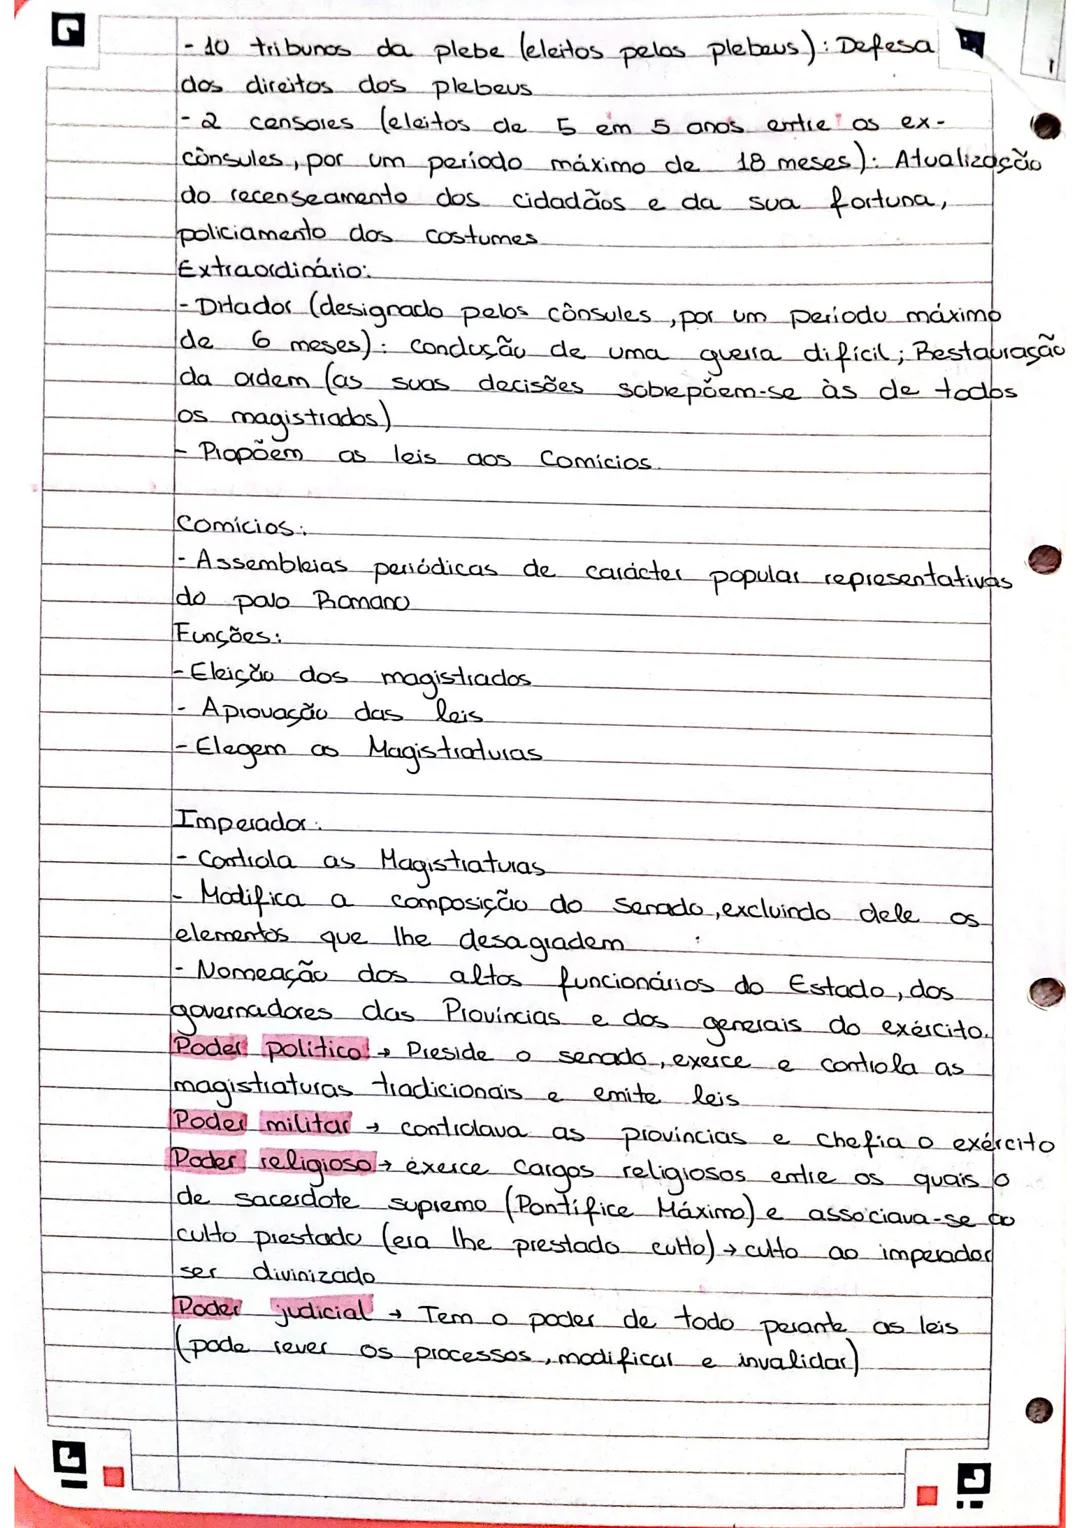 - 10 tribunos da plebe (eleitos pelos plebeus): Defesa
dos direitos dos plebeus
- 2 censores (eleitos de 5 em 5 anos entre os ex-
cônsules, por um período máximo de 18 meses): Atualização
do recenseamento dos cidadãos e da sua fortuna,
policiamento dos costumes
Extraordinário:
- Ditador (designado pelos cônsules, por um período máximo
de 6 meses): Condução de uma guerra difícil; Restauração
da ordem (as suas decisões sobrepõem-se às de todos
os magistrados)
- Propõem as leis aos Comícios.
Comícios:
- Assembleias periódicas de carácter popular representativas
do povo Romano
Funções:
- Eleição dos magistrados
- Aprovação das leis
- Elegem as Magistraturas
Imperador:
- Controla as Magistraturas
- Modifica a composição do Senado, excluindo dele os
elementos que lhe desagradem
- Nomeação dos altos funcionários do Estado, dos
governadores das Províncias e dos generais do exército.
Poder político: → Preside o senado, exerce e controla as
magistraturas tradicionais e emite leis
Poder militar → controlava as províncias e chefia o exército
Poder religioso → exerce cargos religiosos entre os quais o
de sacerdote supremo (Pontífice Máximo) e associava-se ao
culto prestado (era lhe prestado culto) → culto ao imperador
ser divinizado
Poder judicial → Tem o poder de todo perante as leis
(pode rever os processos, modificar e invalidar)